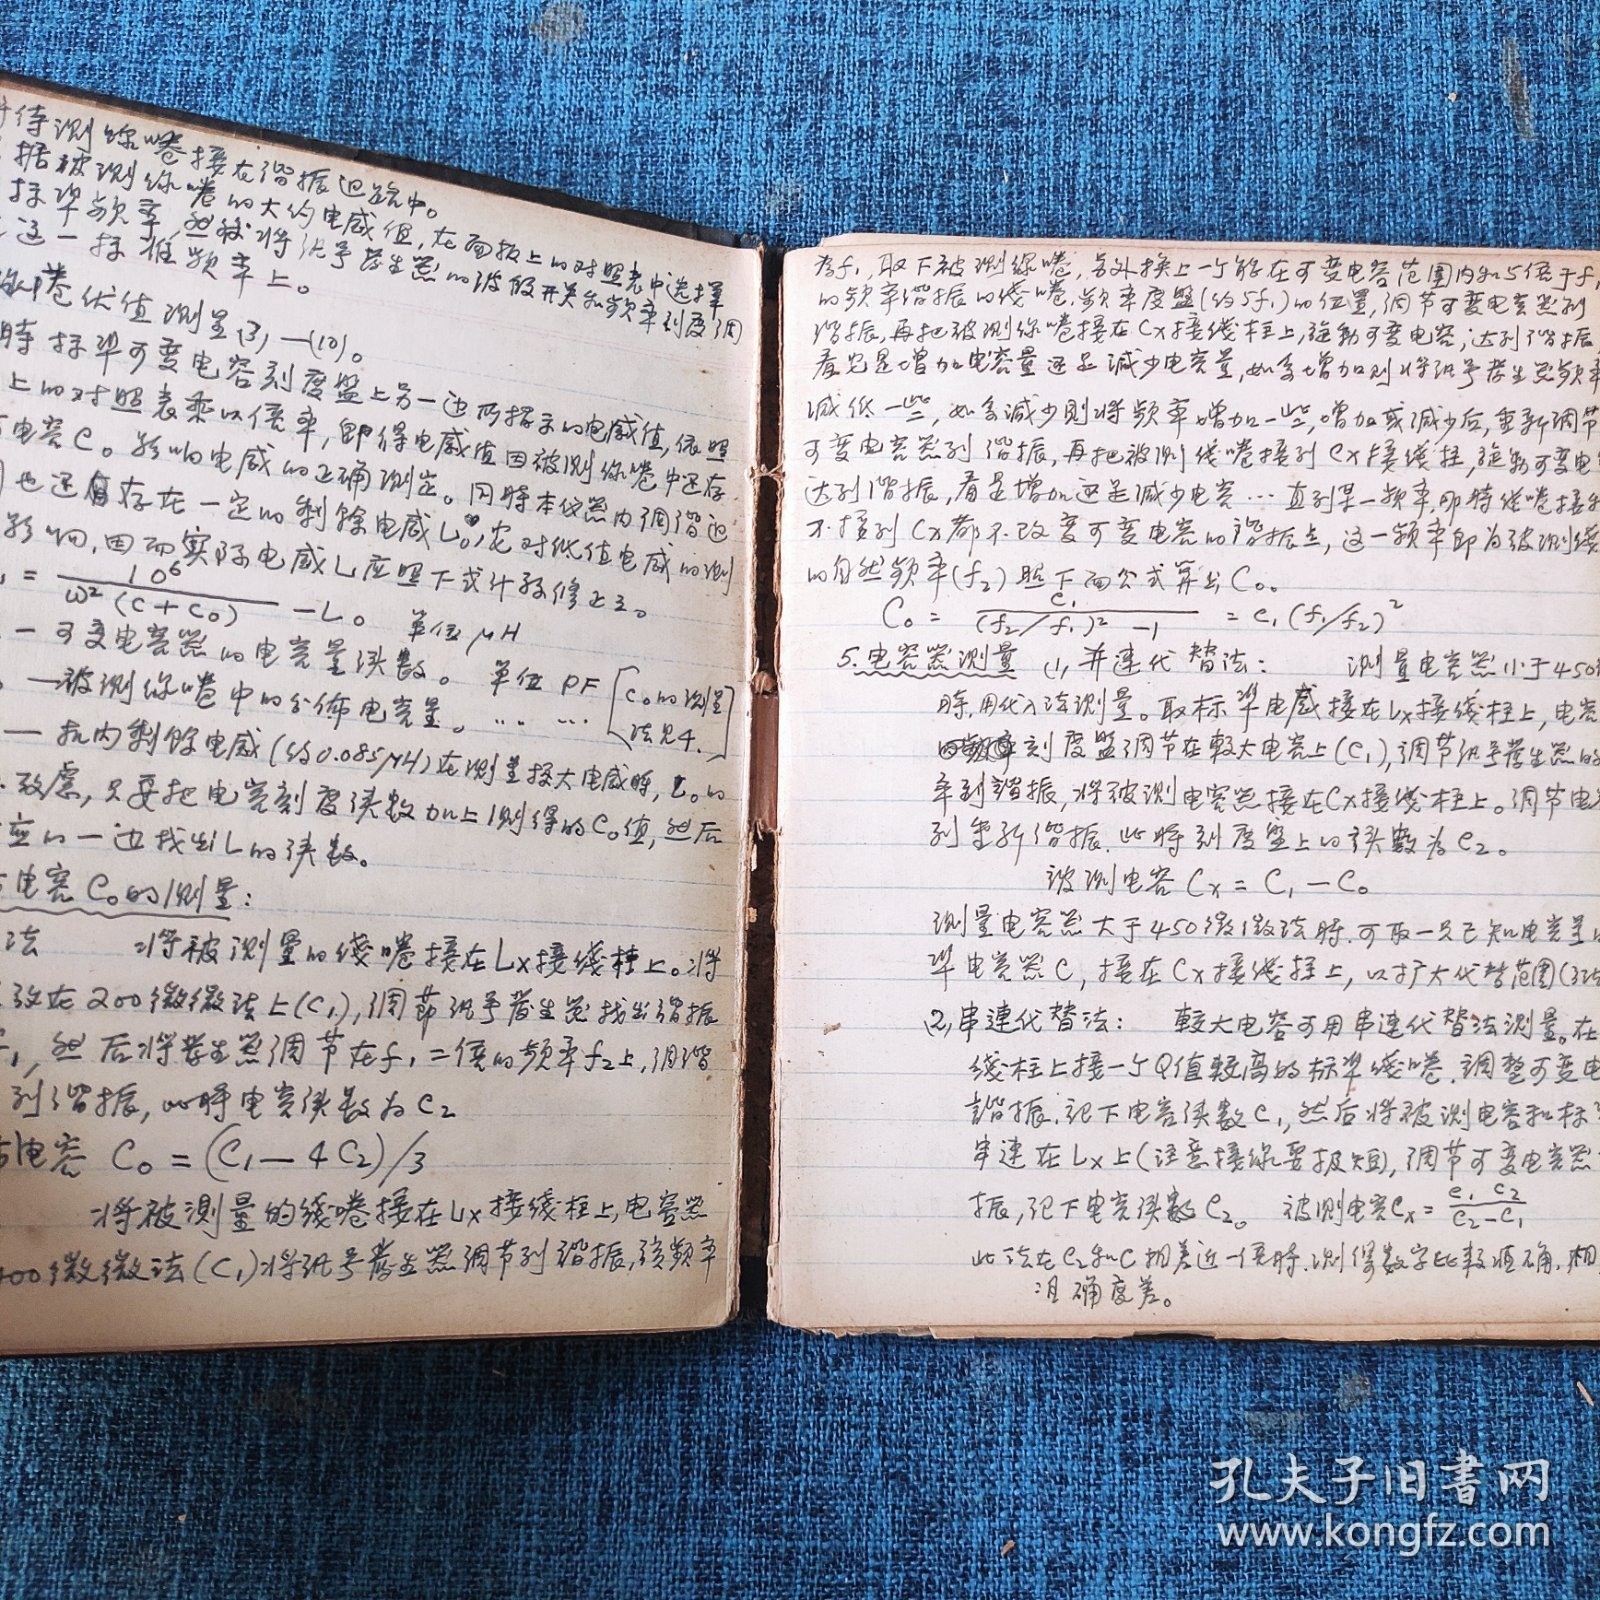 待测线捲接在谐振迴路中。
据被测线捲的大约电感值,在面板上的对照表中选择
标準频率,然後将讯号發生器的波段开关和频率刻度调
这一标准频率上。
捲优值测量(3)—(10)。
時标準可变电容刻度盤上另一边所指示的电感值,依照
上的对照表乘以倍率,即得电感值因被测线捲中还存
电容C。影响电感的正确测定。同時本仪器内调谐迴
也还存在一定的剩餘电感L₀,它对低值电感的测
影响,因而实际电感L应照下式计算修正之。
= 10⁶/ω²(C+C₀) —L₀ 单位μH
—可变电容器的电容量读数。 单位 PF [C₀的测量
—被测线捲中的分佈电容量。 …… …… 法见4.]
—机内剩餘电感(约0.085μH)在测量较大电感時,L₀的
考慮,只要把电容刻度读数加上测得的C₀值,然后
应的一边找出L的读数。
电容C₀的测量:
法 将被测量的綫捲接在Lx接綫柱上。将
放在200微微法上(C₁),调節讯号發生器找出谐振
f₁,然后将發生器调节在f₁二倍的频率f₂上,调谐
到谐振,此時电容读数为C₂
电容 C₀=(C₁—4C₂)/3
将被测量的綫捲接在Lx接綫柱上,电容器
400微微法(C₁)将讯号發生器调节到谐振,该频率
为f₁,取下被测綫捲,另外换上一个能在可变电容范围内和5倍于f₁
的频率谐振的綫捲,频率度盤(约5f₁)的位置,调节可变电容器到
谐振,再把被测线捲接在Cx接綫柱上,旋動可变电容;达到谐振,
看它是增加电容量还是减少电容量,如系增加则将讯号發生器频率
减低一些,如系减少则将频率增加一些,增加或减少后,重新调节
可变电容器到谐振,再把被测綫捲接到Cx接綫柱,旋動可变电
达到谐振,看是增加还是减少电容…直到某一频率,即将线捲接和
不接到Cx都不改变可变电容的谐振点,这一频率即为被测綫
的自然频率(f₂)照下面公式算出C₀。
C₀ = C₁/(f₂/f₁)²—1 = C₁(f₁/f₂)²
5.电容器测量 (1)并連代替法: 测量电容器小于450
時,用代入法测量。取标準电感接在Lx接綫柱上,电容
刻度盤调节在較大电容上(C₁),调节讯号發生器的
率到諧振,将被测电容器接在Cx接綫柱上。调节电
到重新谐振,此時刻度盤上的读数为C₂。
被测电容Cx=C₁—C₀
测量电容器大于450微微法時,可取一只已知电容量
準电容器C,接在Cx接綫柱上,以扩大代替范围(
(2)串連代替法: 較大电容可用串連代替法测量。在
綫柱上接一个Q值較高的标準綫捲,调整可变电
諧振,记下电容读数C₁,然后将被测电容和标
串連在Lx上(注意接線要极短),调节可变电容器
振,记下电容读数C₂。 被测电容Cx= C₁C₂/C₂—C₁
此法在C₂和C相差近一倍時,测得数字比較准确,相
准确度差。
孔夫子旧书网
www.kongfz.com